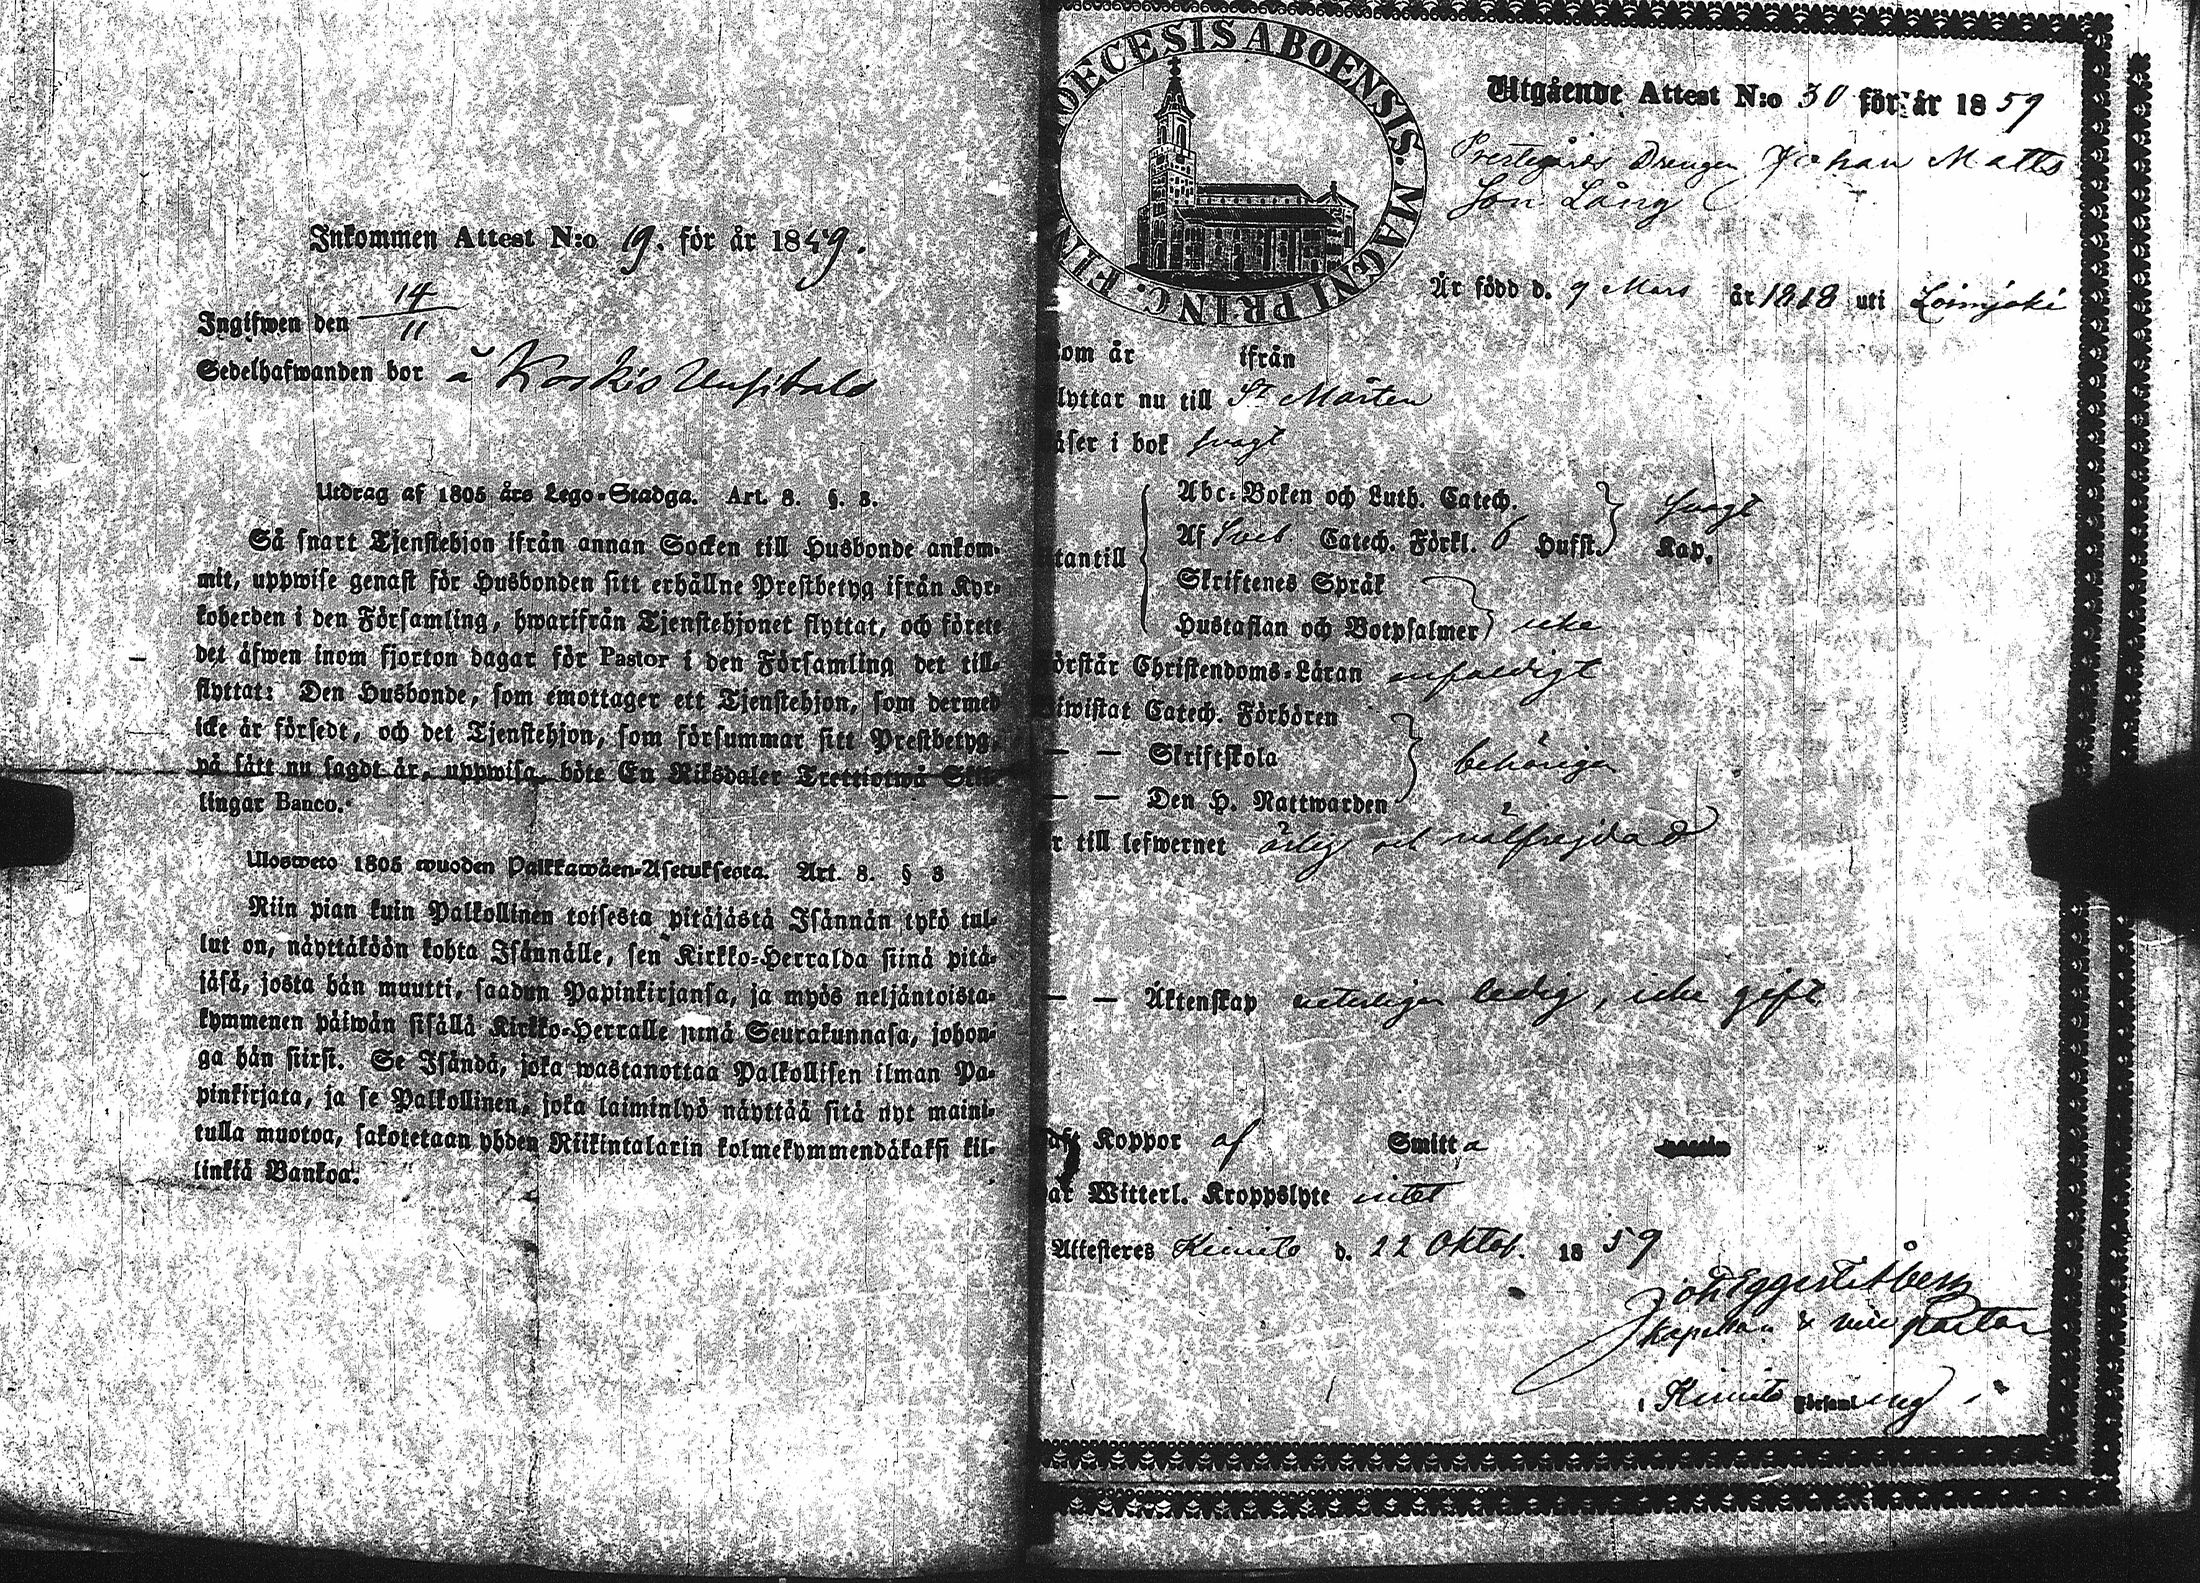 Inkommen Attest N:o 19. för år 1859.
Ingifwen den 14/11
Sedelhafwanden bor å Koskis
Utdrag af 1805 års Lego-Stadga. Art. 8. §. 3.
Så snart Tjenstehjon ifrån annan Socken till Husbonde ankom-
mit, uppwise genast för Husbonden sitt erhållne Prestbetyg ifrån Kyr-
koherden i den Församling, hwarifrån Tjenstehjonet flyttat, och förete
det äfwen inom fjorton dagar för Pastor i den Församling det till-
flyttat: Den Husbonde, som emottager ett Tjenstehjon, som dermed
icke är försedt, och det Tjenstehjon, som försummar sitt Prestbetyg,
på sätt nu sagdt är, uppwisa, böte En Riksdaler Trettiotwå Skil-
lingar Banco.
Ulosweto 1805 wuoden Palkkawäen-Asetuksesta. Art. 8. § 3
Niin pian kuin Palkollinen toisesta pitäjästä Isännän tykö tul-
lut on, näyttäköön kohta Isännälle, sen Kirkko-Herralda siinä pitä-
jäsä, josta hän muutti, saadun Papinkirjansa, ja myös neljäntoista-
kymmenen päiwän sisällä Kirkko-Herralle siinä Seurakunnasa, johon-
ga hän siirsi. Se Isändä, joka wastanottaa Palkollisen ilman Pa-
pinkirjata, ja se Palkollinen, joka laiminlyö näyttää sitä nyt maini-
tulla muotoa, sakotetaan yhden Riikintalarin kolmekymmendäkaksi kil-
linkiä Bankoa.
DIOECESIS ABOENSIS. MAGNI PRINC. FIN
Utgående Attest N:o 30 för år 1859
Prestegårds Drengen Johan Matts
Son Lång
Är född d. 9 Mars år 1818 uti Loimjoki
kom år ifrån
flyttar nu till St Mårten
läser i bok svagt
Abc-Boken och Luth. Catech. svagt
Af Sveb. Catech. Förkl. 6 Husst. Kap.
utantill
Skriftenes Språk
Hustaflan och Botpsalmer icke
förstår Christendoms-Läran enfaldigt
biwistat Catech. Förhören
— — Skriftskola behörigen
— — Den H. Nattwarden
är till lefwernet ärlig och välfrejdad
— — Äktenskap veterligen ledig, icke gift
haft Koppor af Smitta
har Witterl. Kroppslyte intet
Attesteres Kimito d. 22 Oktob. 1859
Joh Eggert Åberg
Kapellan & vice Pastor
i Kimito Församling